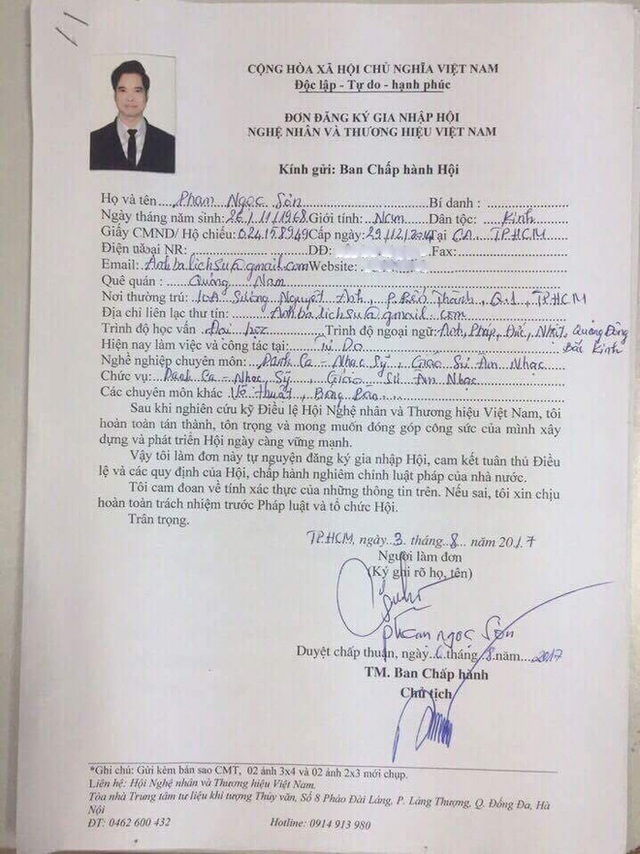 11
CỘNG HÒA XÃ HỘI CHỦ NGHĨA VIỆT NAM
Độc lập - Tự do - hạnh phúc
ĐƠN ĐĂNG KÝ GIA NHẬP HỘI
NGHỆ NHÂN VÀ THƯƠNG HIỆU VIỆT NAM
Kính gửi: Ban Chấp hành Hội
Họ và tên....Phạm Ngọc Sơn.... Bí danh :....
Ngày tháng năm sinh: 26/11/1968 Giới tính: Nam Dân tộc: Kinh
Giấy CMND/ Hộ chiếu: 024158949 Cấp ngày: 29/12/ Tại CA. TPHCM
Điện noại NR: DĐ: Fax:
Email: Anhbalichsu@gmail.com Website:
Quê quán : Quảng Nam
Nơi thường trú: 10A Sương Nguyệt Ánh, P. Bến Thành, Q1, TPHCM
Địa chỉ liên lạc thư tín: Anhbalichsu@gmail.com
Trình độ học vấn Đại học Trình độ ngoại ngữ: Anh, Pháp, Đức, Nhật, Quảng Đông
Hiện nay làm việc và công tác tại: Tự Do Bắc Kinh
Nghề nghiệp chuyên môn: Danh Ca - Nhạc Sỹ, Giáo Sư Âm Nhạc
Chức vụ: Danh Ca - Nhạc Sỹ, Giáo Sư Âm Nhạc
Các chuyên môn khác Võ thuật, Bóng
Sau khi nghiên cứu kỹ Điều lệ Hội Nghệ nhân và Thương hiệu Việt Nam, tôi
hoàn toàn tán thành, tôn trọng và mong muốn đóng góp công sức của mình xây
dựng và phát triển Hội ngày càng vững mạnh.
Vậy tôi làm đơn này tự nguyện đăng ký gia nhập Hội, cam kết tuân thủ Điều
lệ và các quy định của Hội, chấp hành nghiêm chỉnh luật pháp của nhà nước.
Tôi cam đoan về tính xác thực của những thông tin trên. Nếu sai, tôi xin chịu
hoàn toàn trách nhiệm trước Pháp luật và tổ chức Hội.
Trân trọng.
TPHCM, ngày..3. tháng..8.. năm 2017
Người làm đơn
(Ký ghi rõ họ, tên)
Phạm Ngọc Sơn
Duyệt chấp thuận, ngày..6.tháng..8.năm...2017
TM. Ban Chấp hành
Chủ tịch
*Ghi chú: Gửi kèm bản sao CMT, 02 ảnh 3x4 và 02 ảnh 2x3 mới chụp.
Liên hệ: Hội Nghệ nhân và Thương hiệu Việt Nam.
Tòa nhà Trung tâm tư liệu khí tượng Thủy văn, Số 8 Pháo Đài Láng, P. Láng Thượng, Q. Đống Đa, Hà
Nội
ĐT: 0462 600 432 Hotline: 0914 913 980